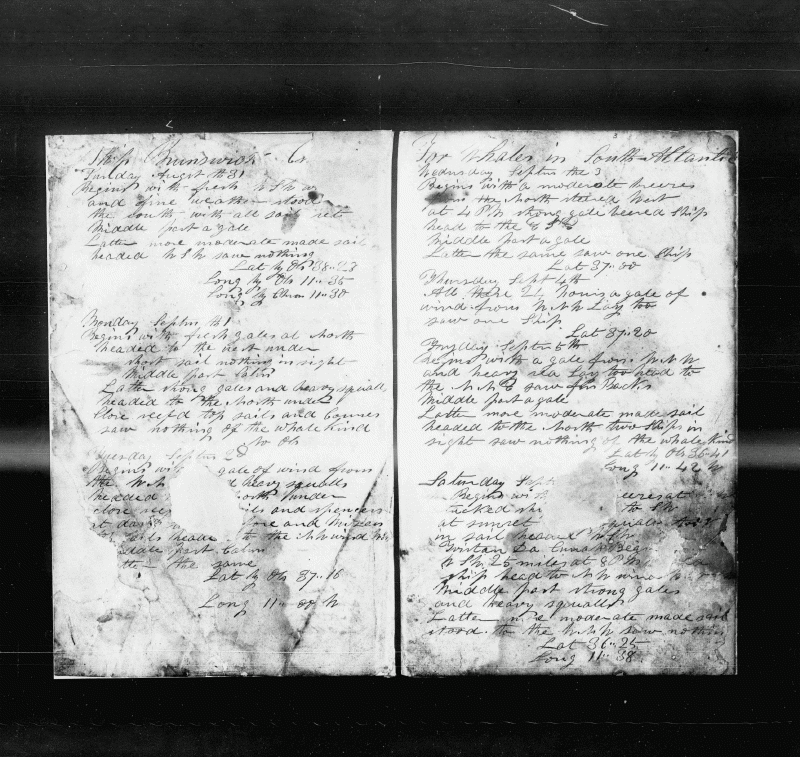 Ship Brunswick Cr
Sunday August th 31
Begins with fresh W S W
and fine weather stood
the south with all sail set
Middle part a gale
Latter more moderate made sail
headed W S W saw nothing
Lat by Obs 38..23
Long by Obs 11..35
Long by Chron 11..30
Monday Septm th 1
Begins with fresh gales at North
headed to the west under
short sail nothing in sight
Middle part Calm
Latter strong gales and heavy squall
headed to the North under
close reef'd top sails and Courses
saw nothing of the whale kind
No Obs
Tuesday Septm 2d
Begins with gale of wind from
the W.N. heavy squalls
headed North under
close reef and spencers
at dark fore and Mizen
sails headed to the NW wind
middle part Calm
the same
Lat by Obs 37..16
Long 11..00 W
For Whales in South Atlantic
Wednesday Septm the 3
Begins with a moderate breeres
from the North steered West
at 4 PM strong gale veered Ship
head to the
Middle part a gale
Latter the same saw one Ship
Lat 37..00
Thursday Sept 4th
All these 24 hours a gale of
wind from W N W Lay too
saw one Ship
Lat 37..20
Fryday Septm 5th
Begins with a gale from W N W
and heavy sea Lay too head to
the N.N.E saw fin Backs
Middle part a gale
Latter more moderate made sail
headed to the North two Ships in
sight saw nothing of the whale kind
Lat by Obs 36-41
Long 11..42 W
Saturday Sept
Begins with breeres at
tacked ship to SW
at sunset
on sail headed W S W
Tristan Da Cunah
W S W 25 miles at 8 PM
ship head to N W wind
Middle part strong gales
and heavy squalls
Latter more moderate made sail
stood to the W N W saw nothin
Lat 36..25
Long 11..38